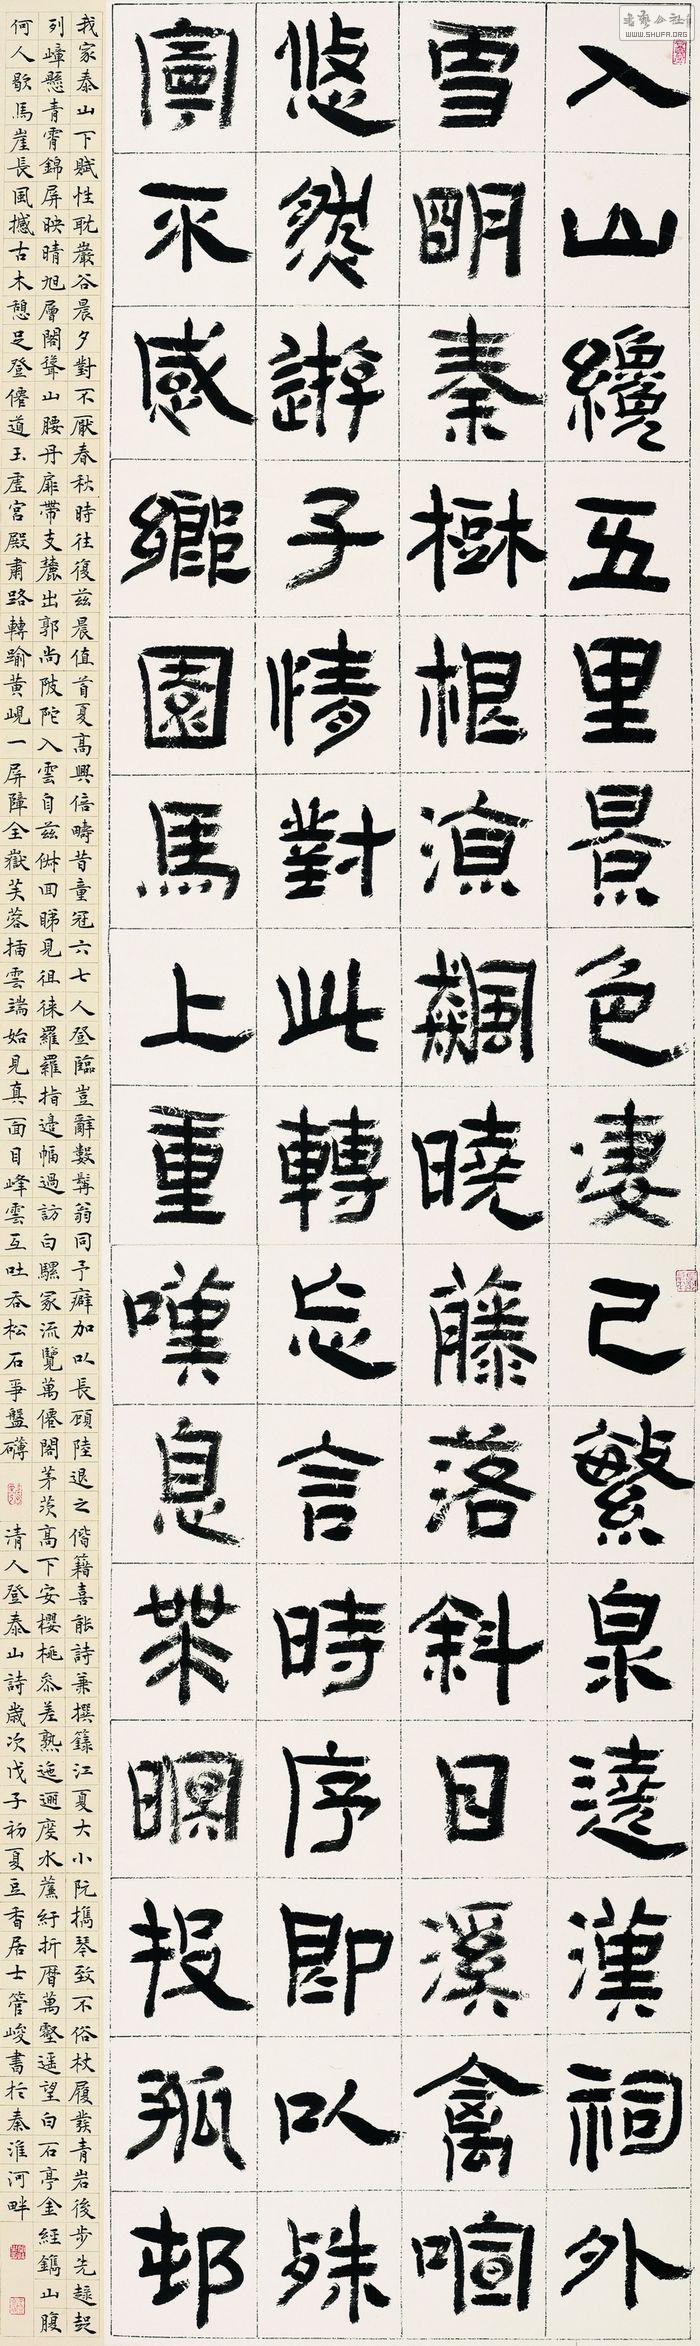 入山纔五里景色凄已繁泉遶漢祠外
雪明秦樹根湌飆曉藤落斜日溪禽喧
悠然遊子情對此轉忘言時序即以殊
寧不感鄉園馬上重嘆息策暝投孤邨
我家泰山下賦性耽巖谷晨夕對不厭春秋時往復茲晨值首夏高興倍疇昔童冠六七人登臨豈辭數髯翁同予癖加以長頎陸退之偕籍喜能詩兼撰籙江夏大小阮擕琴致不俗杖履發青岩後步先趨
列嶂懸青霄錦屏映晴旭層閣聳山腰丹扉帶支麓出郭尚陂陀入雲自茲倏回睇見徂徠羅羅指邊幅過訪白騾冢流覽萬僊閣茅茨高下安櫻桃參差熟迤邐度水簾紆折曆萬壑遥望白石亭金經鐫山腹
何人歇馬崖長風撼古木憩足登僊道玉虛宮殿肅路轉踰黃峴一屏障全嶽芙蓉插雲端始見真面目峰雲互吐吞松石爭盤礴 清人登泰山詩歲次戊子初夏豆香居士管峻書於秦淮河畔
書藝公社
WWW.SHUFA.ORG